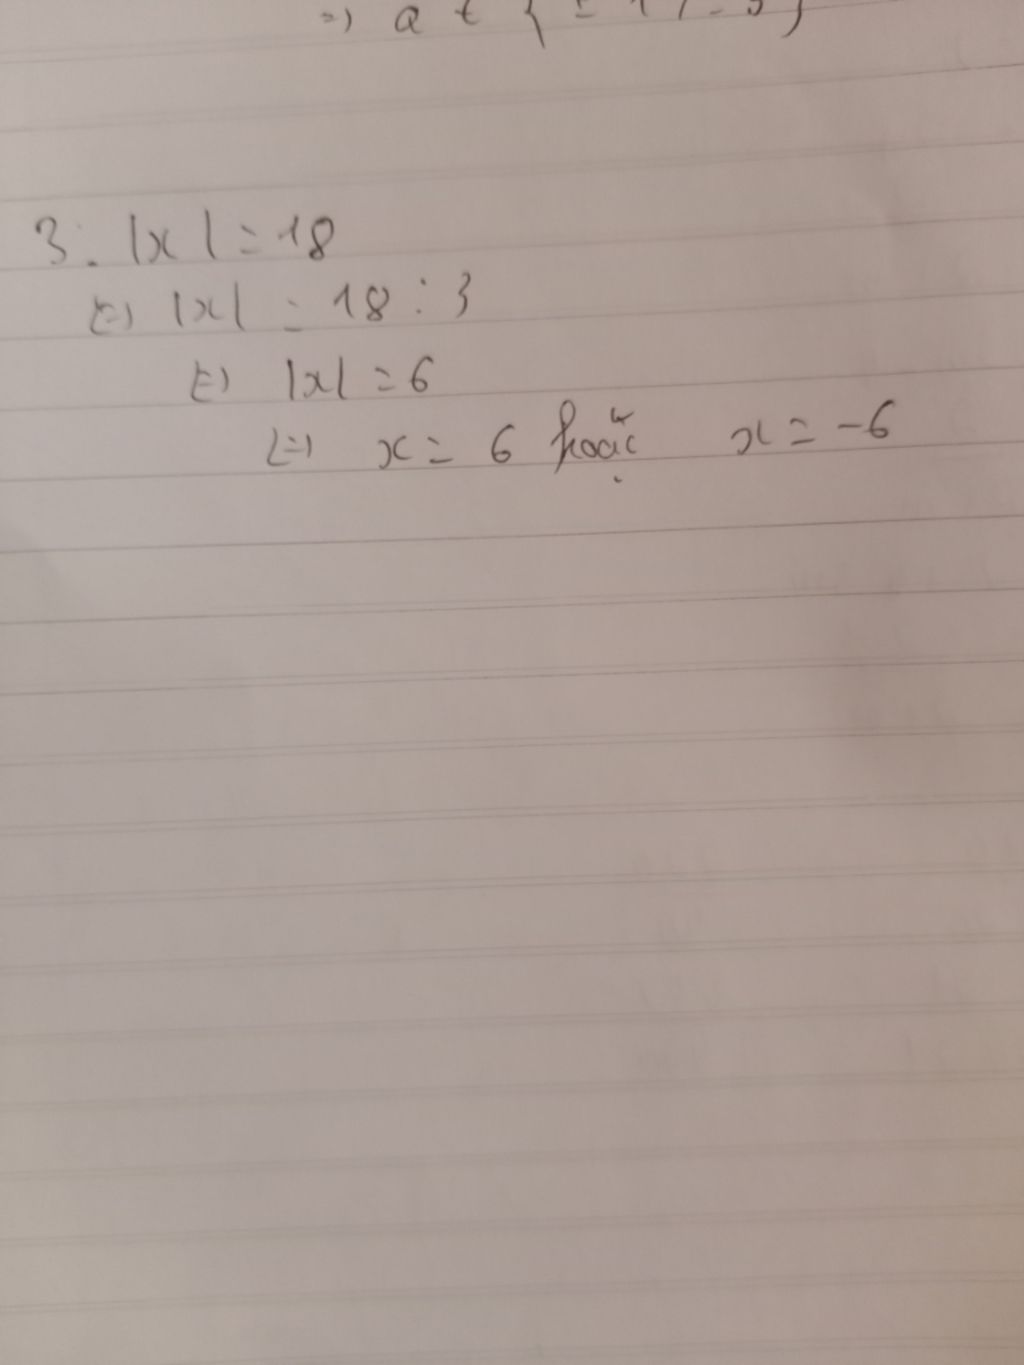 =) a ∈ {
3. |x| = 18
<=> |x| = 18 : 3
<=> |x| = 6
<=> x = 6 hoặc x = -6